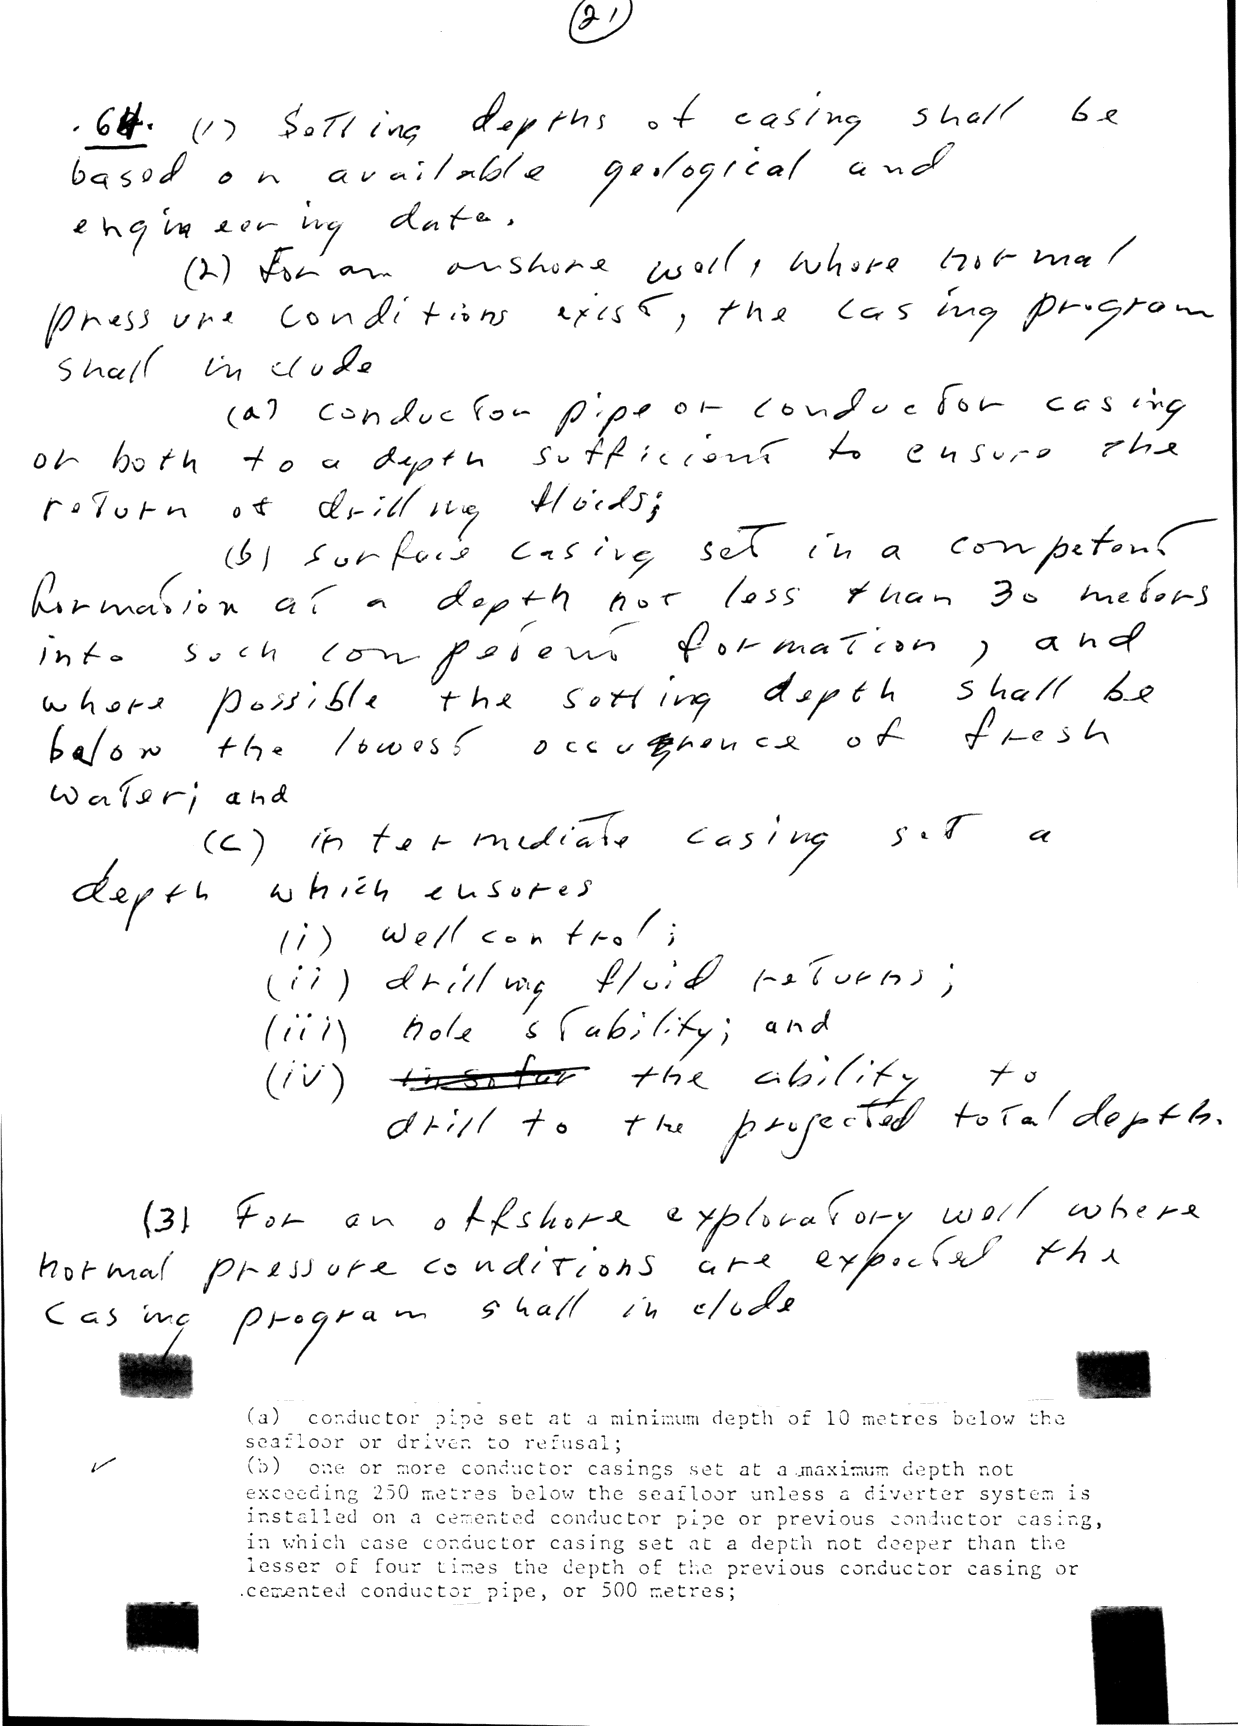 21
.64. (1) Setting depths of casing shall be
based on available geological and
engineering data.
(2) For an onshore well, where normal
pressure conditions exist, the casing program
shall include
(a) conductor pipe or conductor casing
or both to a depth sufficient to ensure the
return of drilling fluids;
(b) surface casing set in a competent
formation at a depth not less than 30 meters
into such competent formation, and
where possible the setting depth shall be
below the lowest occurrence of fresh
water; and
(c) intermediate casing set a
depth which ensures
(i) well control;
(ii) drilling fluid returns;
(iii) hole stability; and
(iv) insofar the ability to
drill to the projected total depth.
(3) For an offshore exploratory well where
normal pressure conditions are expected the
casing program shall include
(a) conductor pipe set at a minimum depth of 10 metres below the
seafloor or driven to refusal;
(b) one or more conductor casings set at a maximum depth not
exceeding 250 metres below the seafloor unless a diverter system is
installed on a cemented conductor pipe or previous conductor casing,
in which case conductor casing set at a depth not deeper than the
lesser of four times the depth of the previous conductor casing or
cemented conductor pipe, or 500 metres;